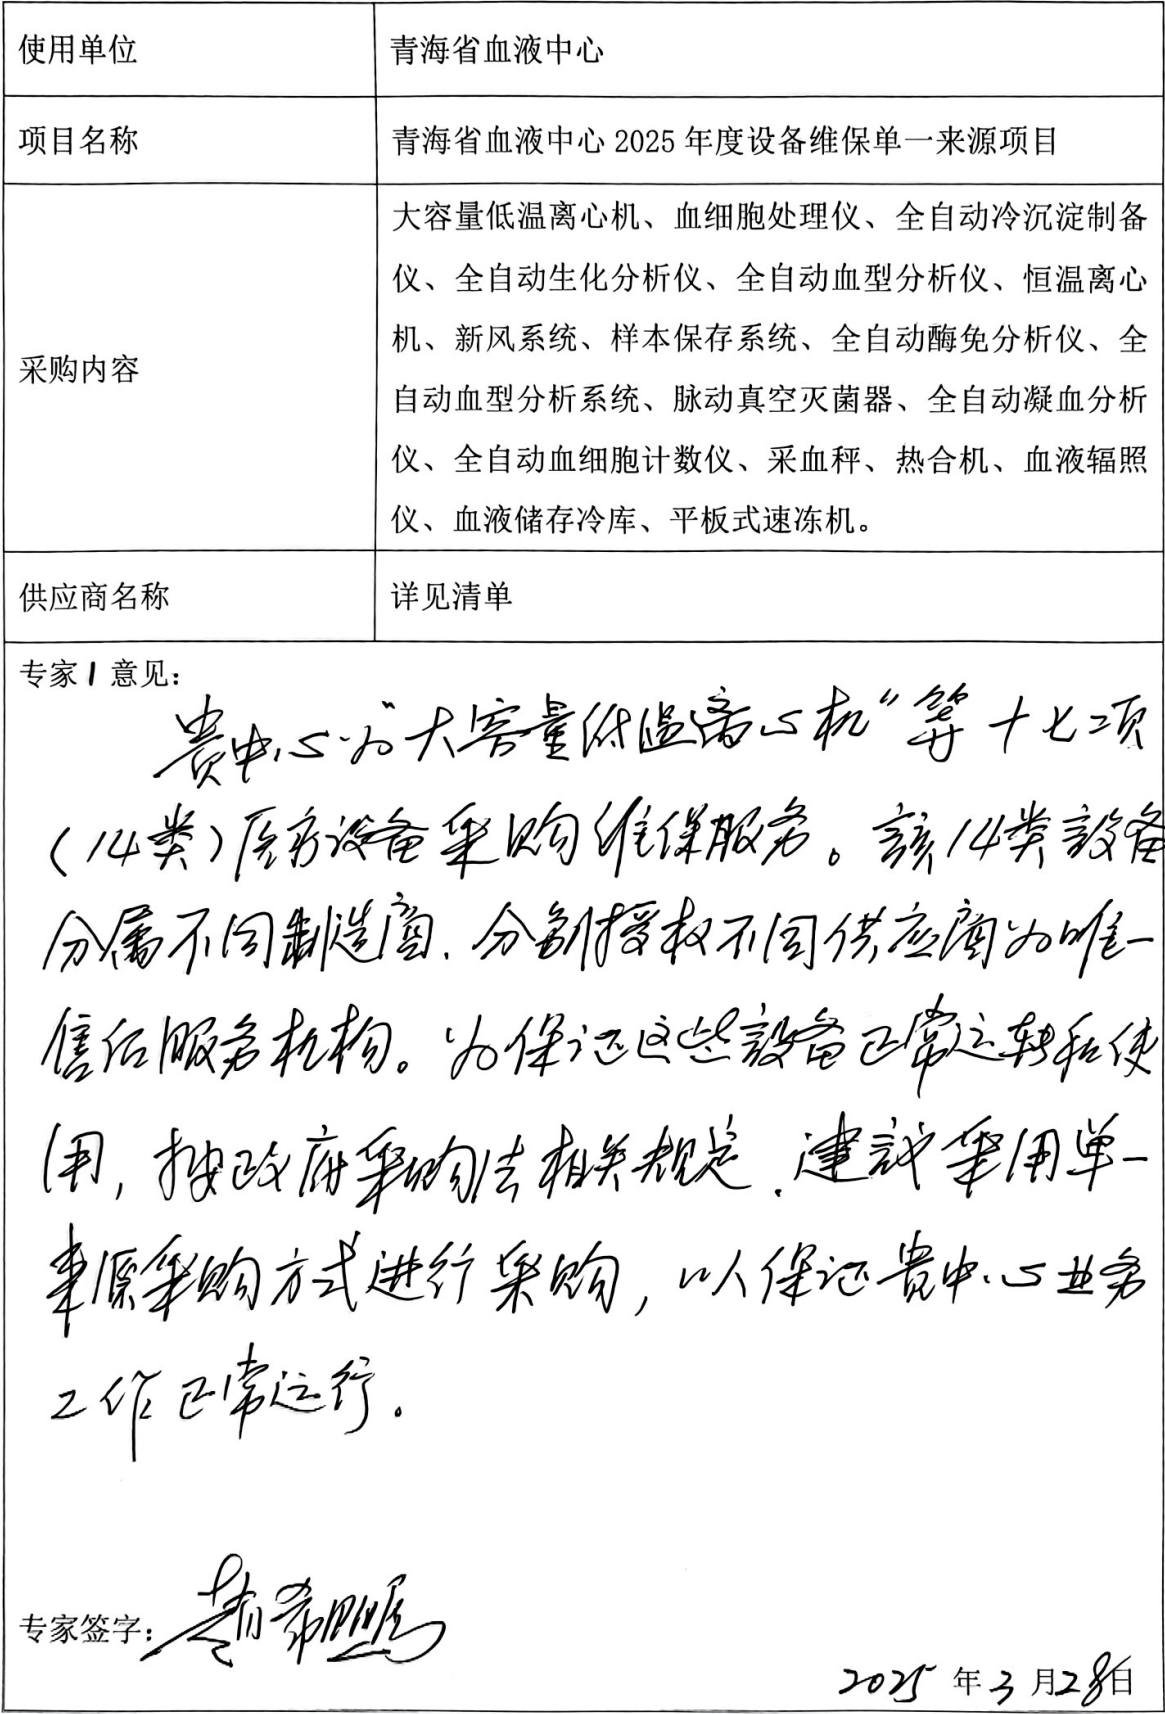 使用单位 青海省血液中心
项目名称 青海省血液中心 2025 年度设备维保单一来源项目
采购内容
大容量低温离心机、血细胞处理仪、全自动冷沉淀制备
仪、全自动生化分析仪、全自动血型分析仪、恒温离心
机、新风系统、样本保存系统、全自动酶免分析仪、全
自动血型分析系统、脉动真空灭菌器、全自动凝血分析
仪、全自动血细胞计数仪、采血秤、热合机、血液辐照
仪、血液储存冷库、平板式速冻机。
供应商名称 详见清单
专家1意见：
贵中心为“大容量低温离心机”等十七项
（14类）医疗设备采购维保服务。該14类設备
分属不同制造商，分别授权不同供应商为唯一
售后服务机构。为保证这些設备正常运转和使
用，按政府采购法相关规定，建议采用单一
来源采购方式进行采购，以保证贵中心业务
工作正常运行。
专家签字：
2025 年 3 月 28 日